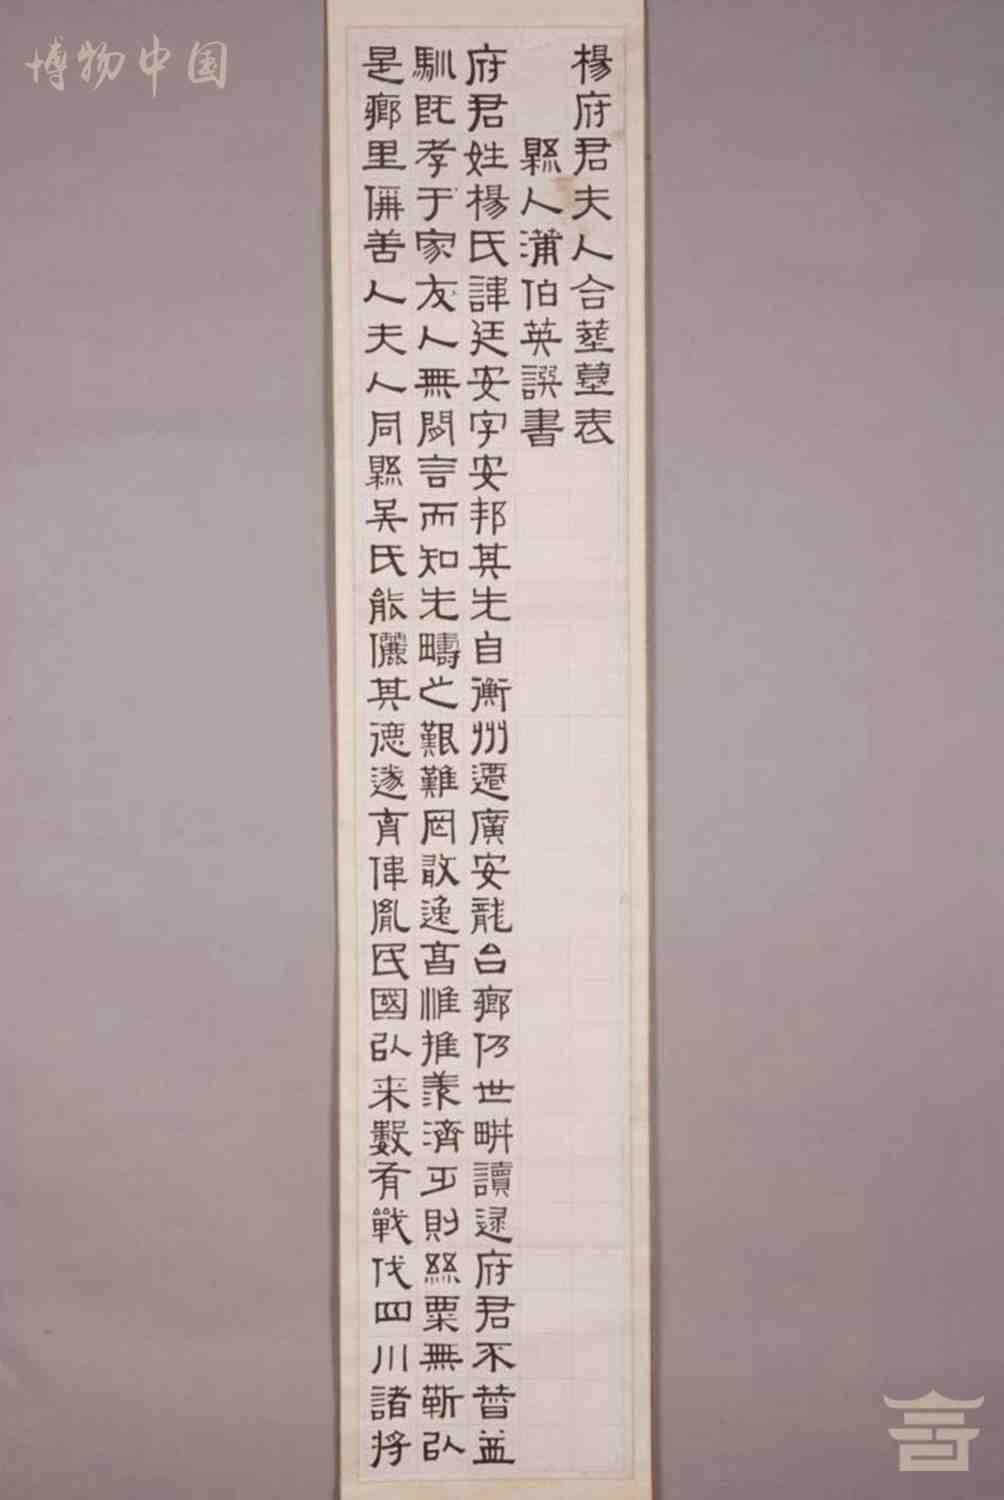 博物中国
楊府君夫人合塟墓表
縣人蒲伯英譔書
府君姓楊氏諱廷安字安邦其先自衡州遷廣安龍台鄉仍世畊讀逮府君不替益
馴既孝于家友人無間言而知先疇之艱難罔敢逸高惟推羕濟乏則絲粟無靳以
是鄉里偁善人夫人同縣吳氏能儷其德遂育偉胤民國以来數有戰伐四川諸将